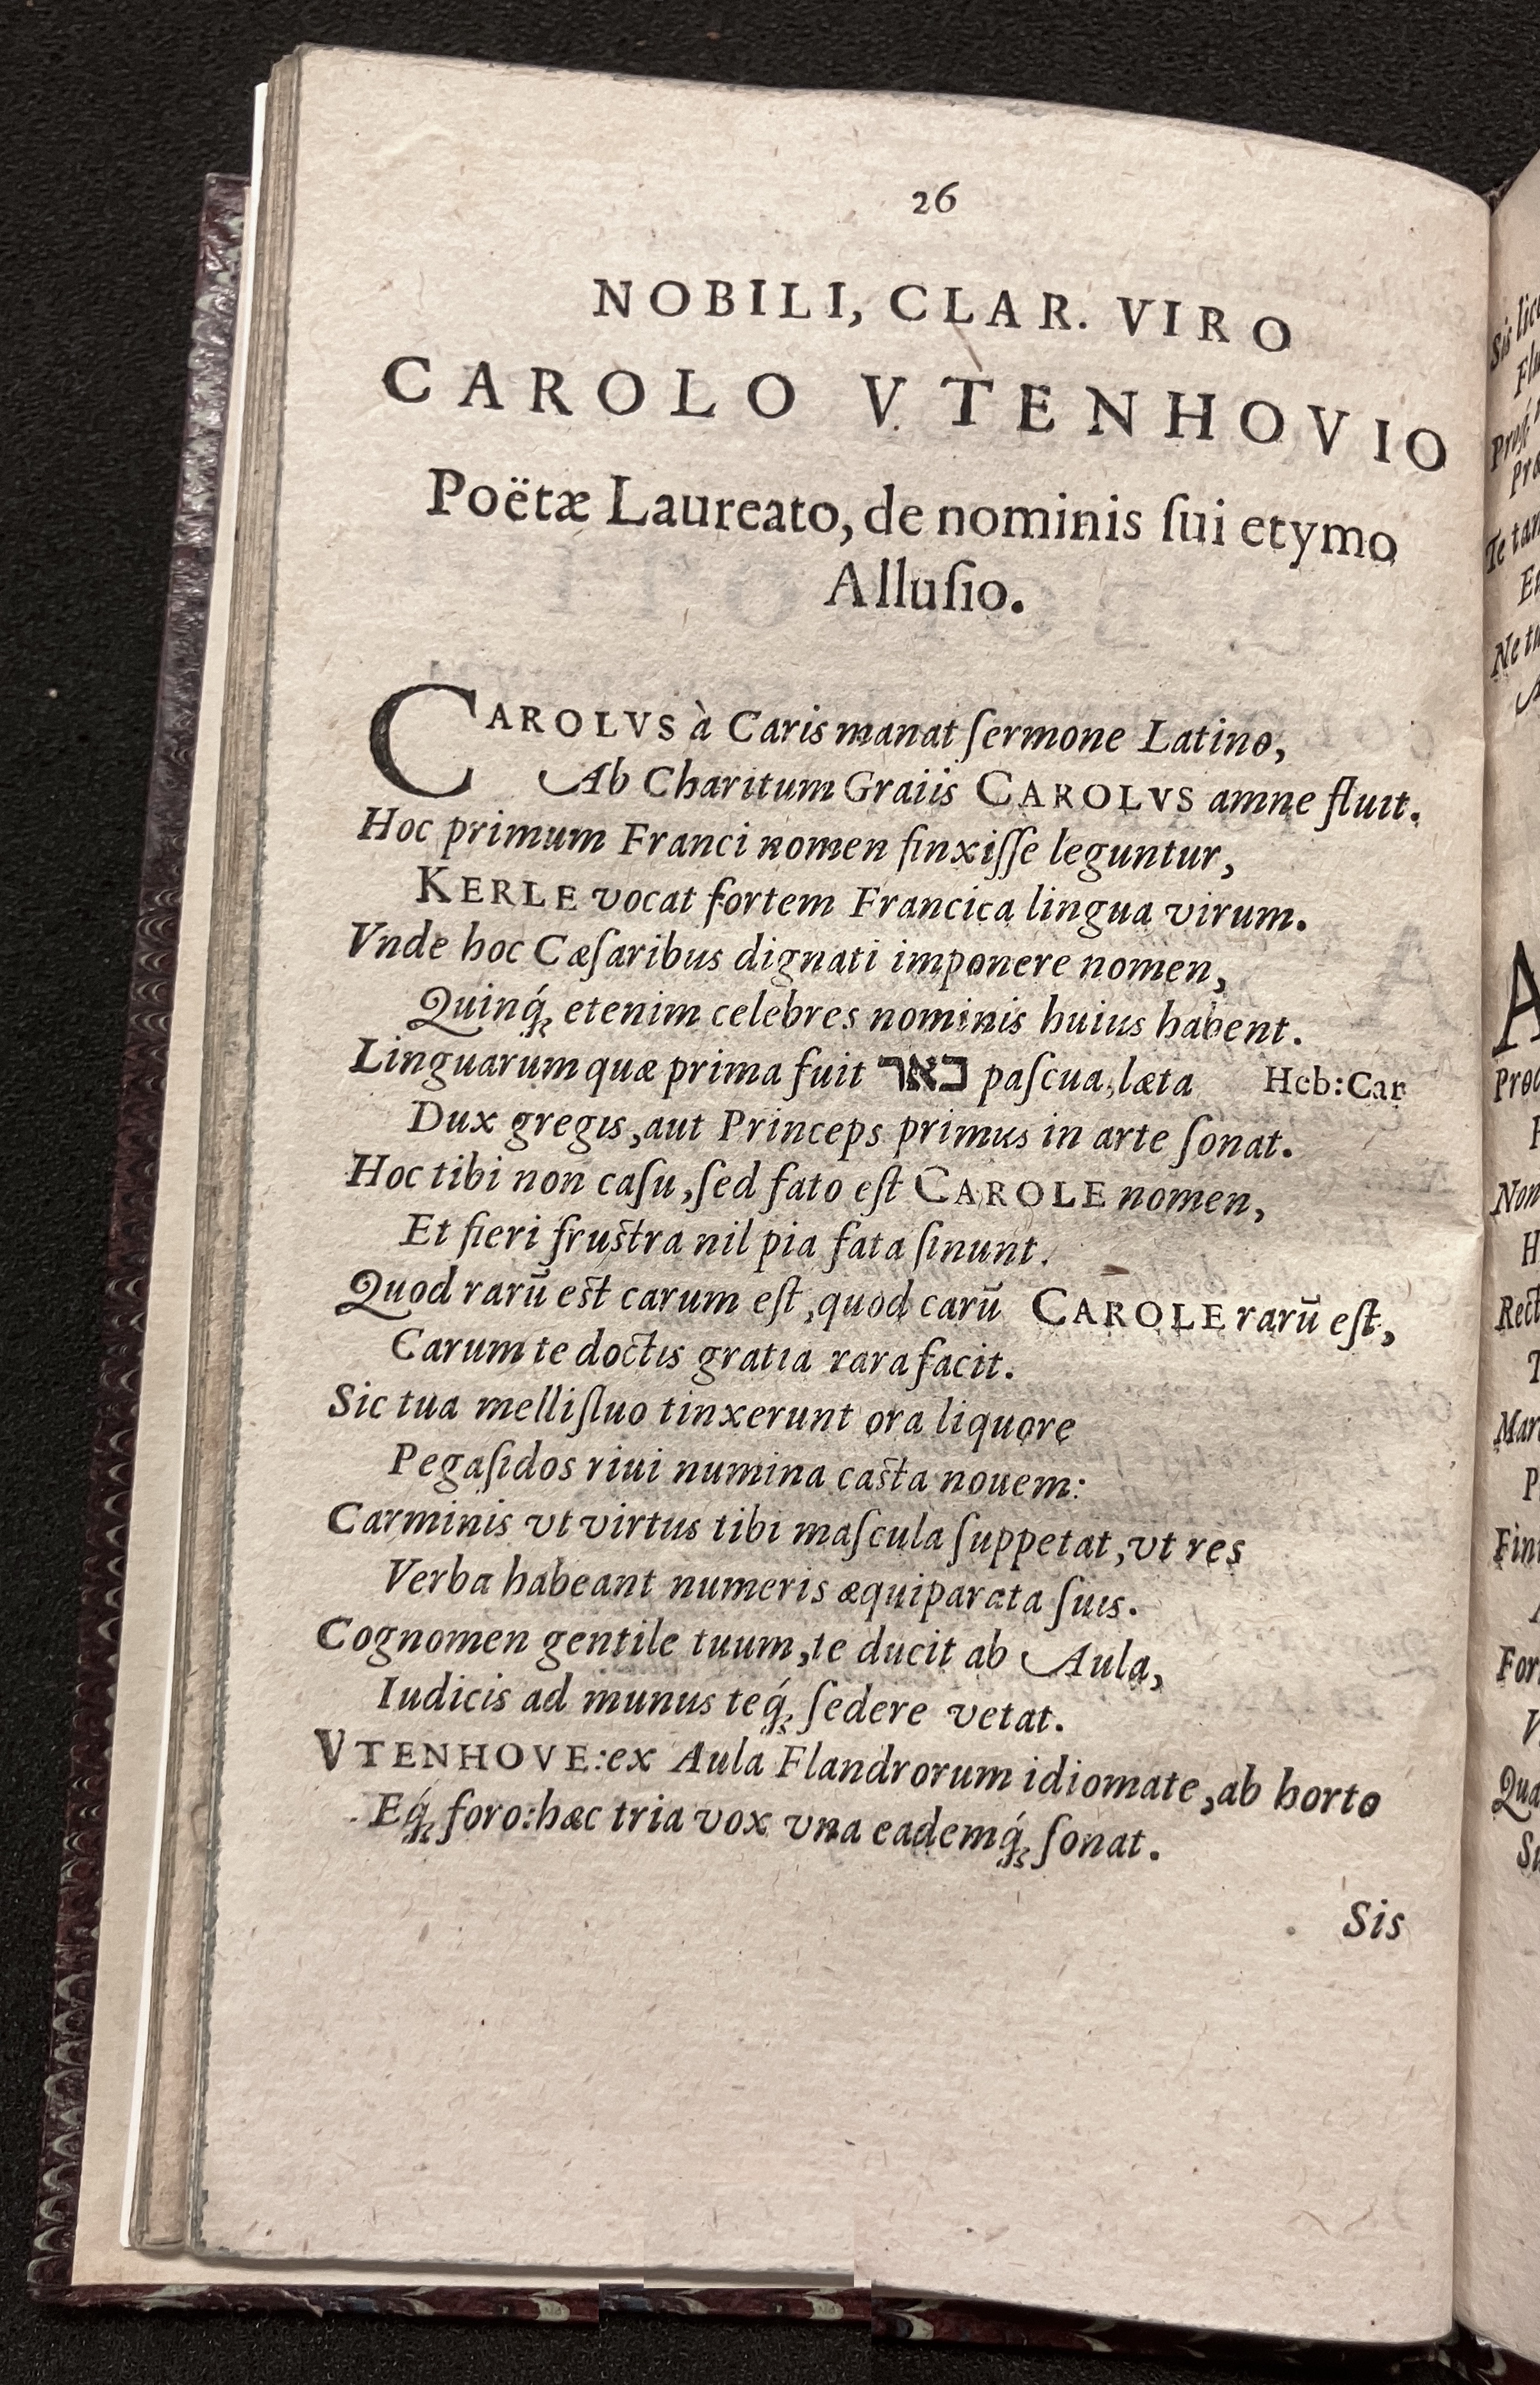 26
NOBILI, CLAR. VIRO
CAROLO VTENHOVIO
Poëtæ Laureato, de nominis ſui etymo
Alluſio.
CAROLVS à Caris manat ſermone Latino,
Ab Charitum Graiis CAROLVS amne fluit.
Hoc primum Franci nomen finxiſſe leguntur,
KERLE vocat fortem Francica lingua virum.
Vnde hoc Cæſaribus dignati imponere nomen,
Quinq́ꝫ etenim celebres nominis huius habent.
Linguarum quæ prima fuit כאר paſcua, læta Heb: Car
Dux gregis, aut Princeps primus in arte ſonat.
Hoc tibi non caſu, ſed fato eſt CAROLE nomen,
Et fieri fruſtra nil pia fata ſinunt.
Quod rarū eſt carum eſt, quod carū CAROLE rarū eſt,
Carum te doctis gratia rara facit.
Sic tua mellifluo tinxerunt ora liquore
Pegaſidos riui numina caſta nouem:
Carminis vt virtus tibi maſcula ſuppetat, vt res
Verba habeant numeris æquiparata ſuis.
Cognomen gentile tuum, te ducit ab Aula,
Iudicis ad munus teq́ꝫ ſedere vetat.
VTENHOVE: ex Aula Flandrorum idiomate, ab horto
Eq́ꝫ foro: hæc tria vox vna eademq́ꝫ ſonat.
Sis